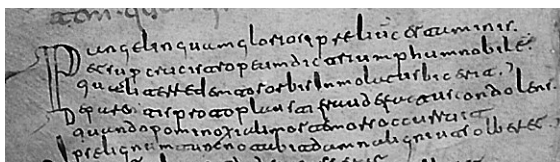 Pange linguam gloriosi preliu certaminis.
et sup crucis tropeum dic triumphum nobile
qualiter redemtor orbis inmolatus uicerit
De protoplasti fraude condolens.
quando pomi noxialis corruit
ipse lignum notauit damna ligni ut solueret